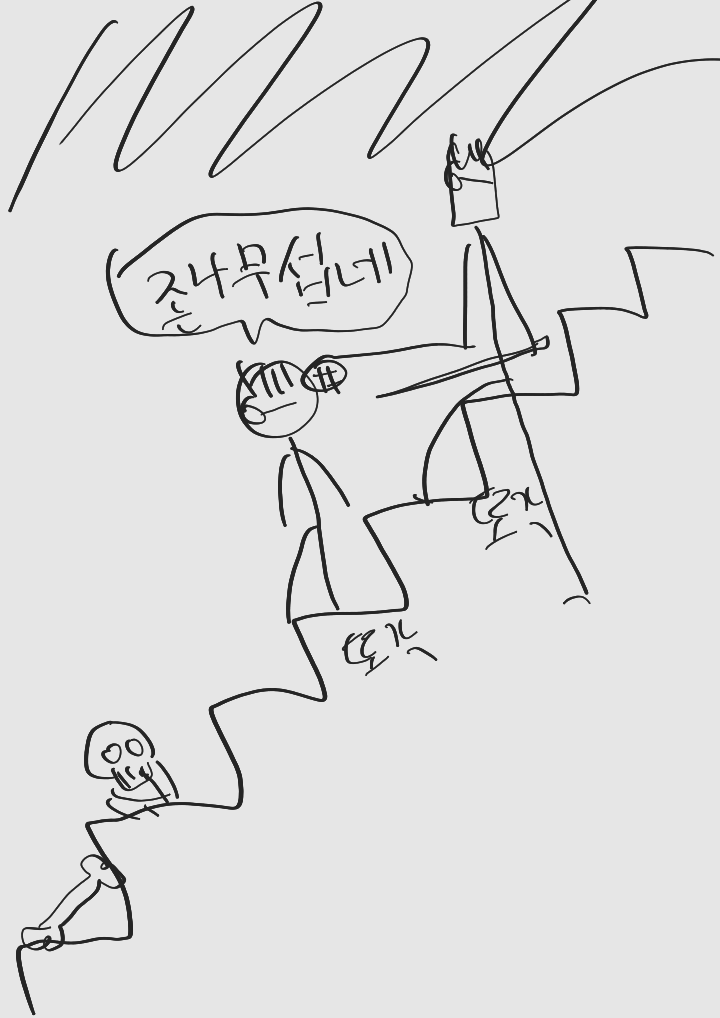 존나무섭네
또각
또각